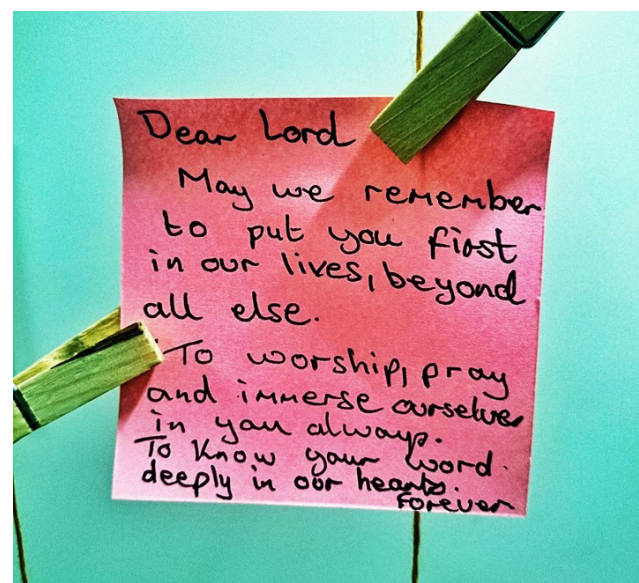 Dear Lord
May we remember
to put you first
in our lives, beyond
all else.
To worship, pray
and immerse ourselves
in you always.
To know your word
deeply in our hearts.
Forever